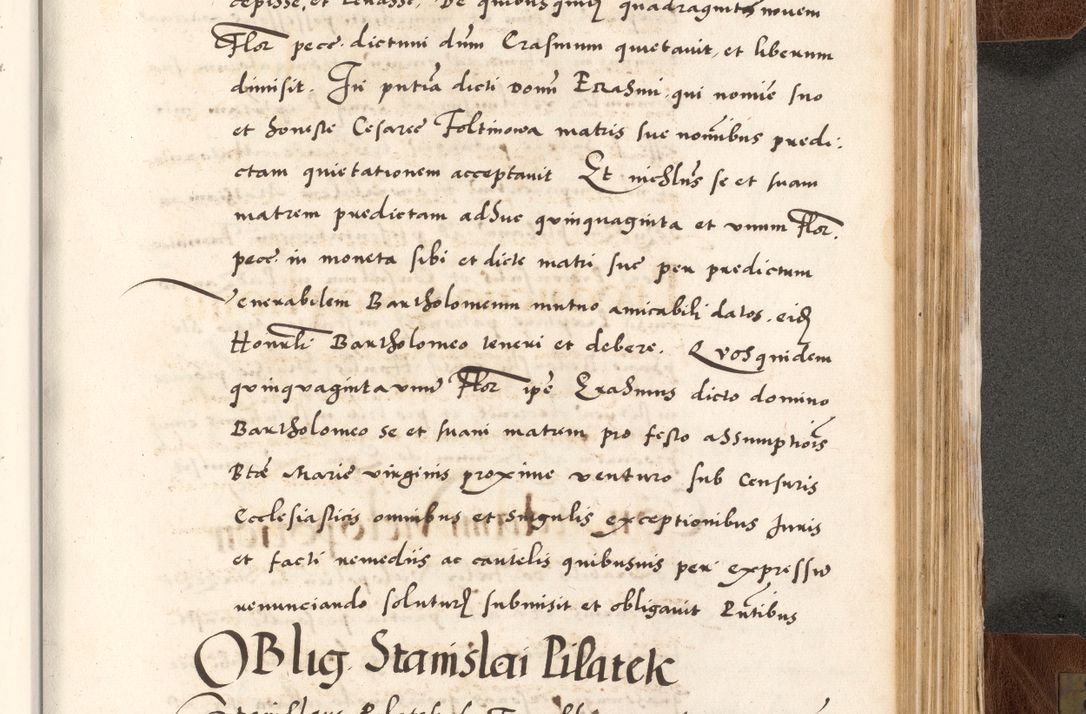 cepisse, et levasse. De quibusquidem quadraginta novem
Flor pece. dictum dnm Erasmum quietavit, et liberum
dimisit. In pntia dicti domi Erasmi, qui nomie suo
et honeste Cesaree Foltinowa matris sue nomibus predi
ctam quietationem acceptavit Et nichlus se et suam
matrem predictam adhuc quinquaginta et unum Flor.
pece. in moneta sibi et dicte matri sue per predictum
Venerabilem Bartholomeum mutuo amicabili datos. eid
Honurli Bartholomeo teneri et debere. Quosquidem
quinquaginta unu Flor ipe Erasmus dicto domino
Bartholomeo se et suam matrem pro festo assumptiois
Bte Marie virginis proxime venturo sub Censuris
Ecclesiasticis omnibus et singulis exceptionibus Juris
et facti remediis ac cautelis quibusvis per expresse
renunciando soluturum submisit et obligavit Pntibus
OBlig Stanislai Pilatek